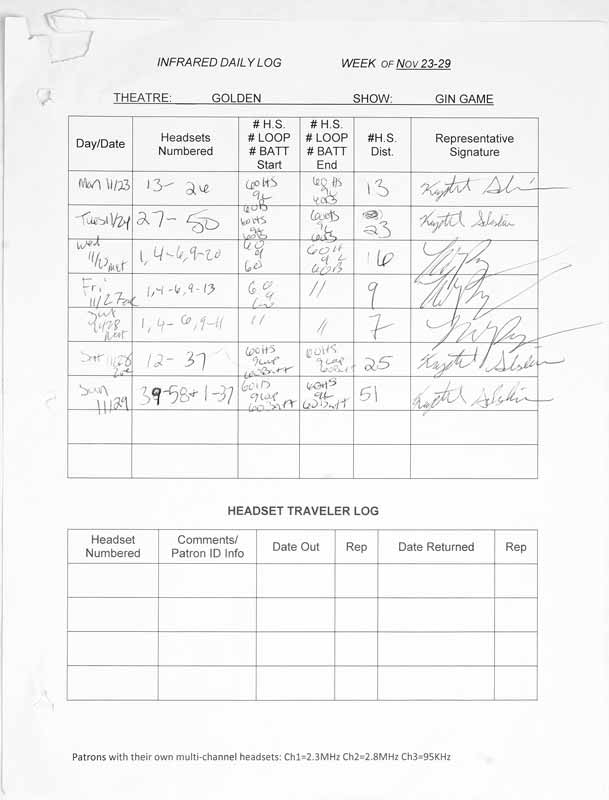 INFRARED DAILY LOG WEEK OF NOV 23-29
THEATRE: GOLDEN SHOW: GIN GAME
Day/Date Headsets Numbered # H.S. # LOOP # BATT Start # H.S. # LOOP # BATT End #H.S. Dist. Representative Signature
Mon 11/23 13- 26 60HS 9L 60B 60HS 9L 60B 13
Tues 11/24 27- 50 60HS 9L 60B 60HS 9L 60B 23
Wed 11/25 mat 1, 4-6, 9-20 60 9 60 60H 9L 60B 16
Fri 11/27 1, 4-6, 9-13 60 9 60 // 9
Sat 11/28 mat 1, 4-6, 9-11 // // 7
Sat 11/28 12- 37 60HS 9Loop 60Batt 60HS 9Loop 60Batt 25
Sun 11/29 39-58+1-37 60HS 9Loop 60Batt 60HS 9L 60Batt 51
HEADSET TRAVELER LOG
Headset Numbered Comments/ Patron ID Info Date Out Rep Date Returned Rep
Patrons with their own multi-channel headsets: Ch1=2.3MHz Ch2=2.8MHz Ch3=95KHz